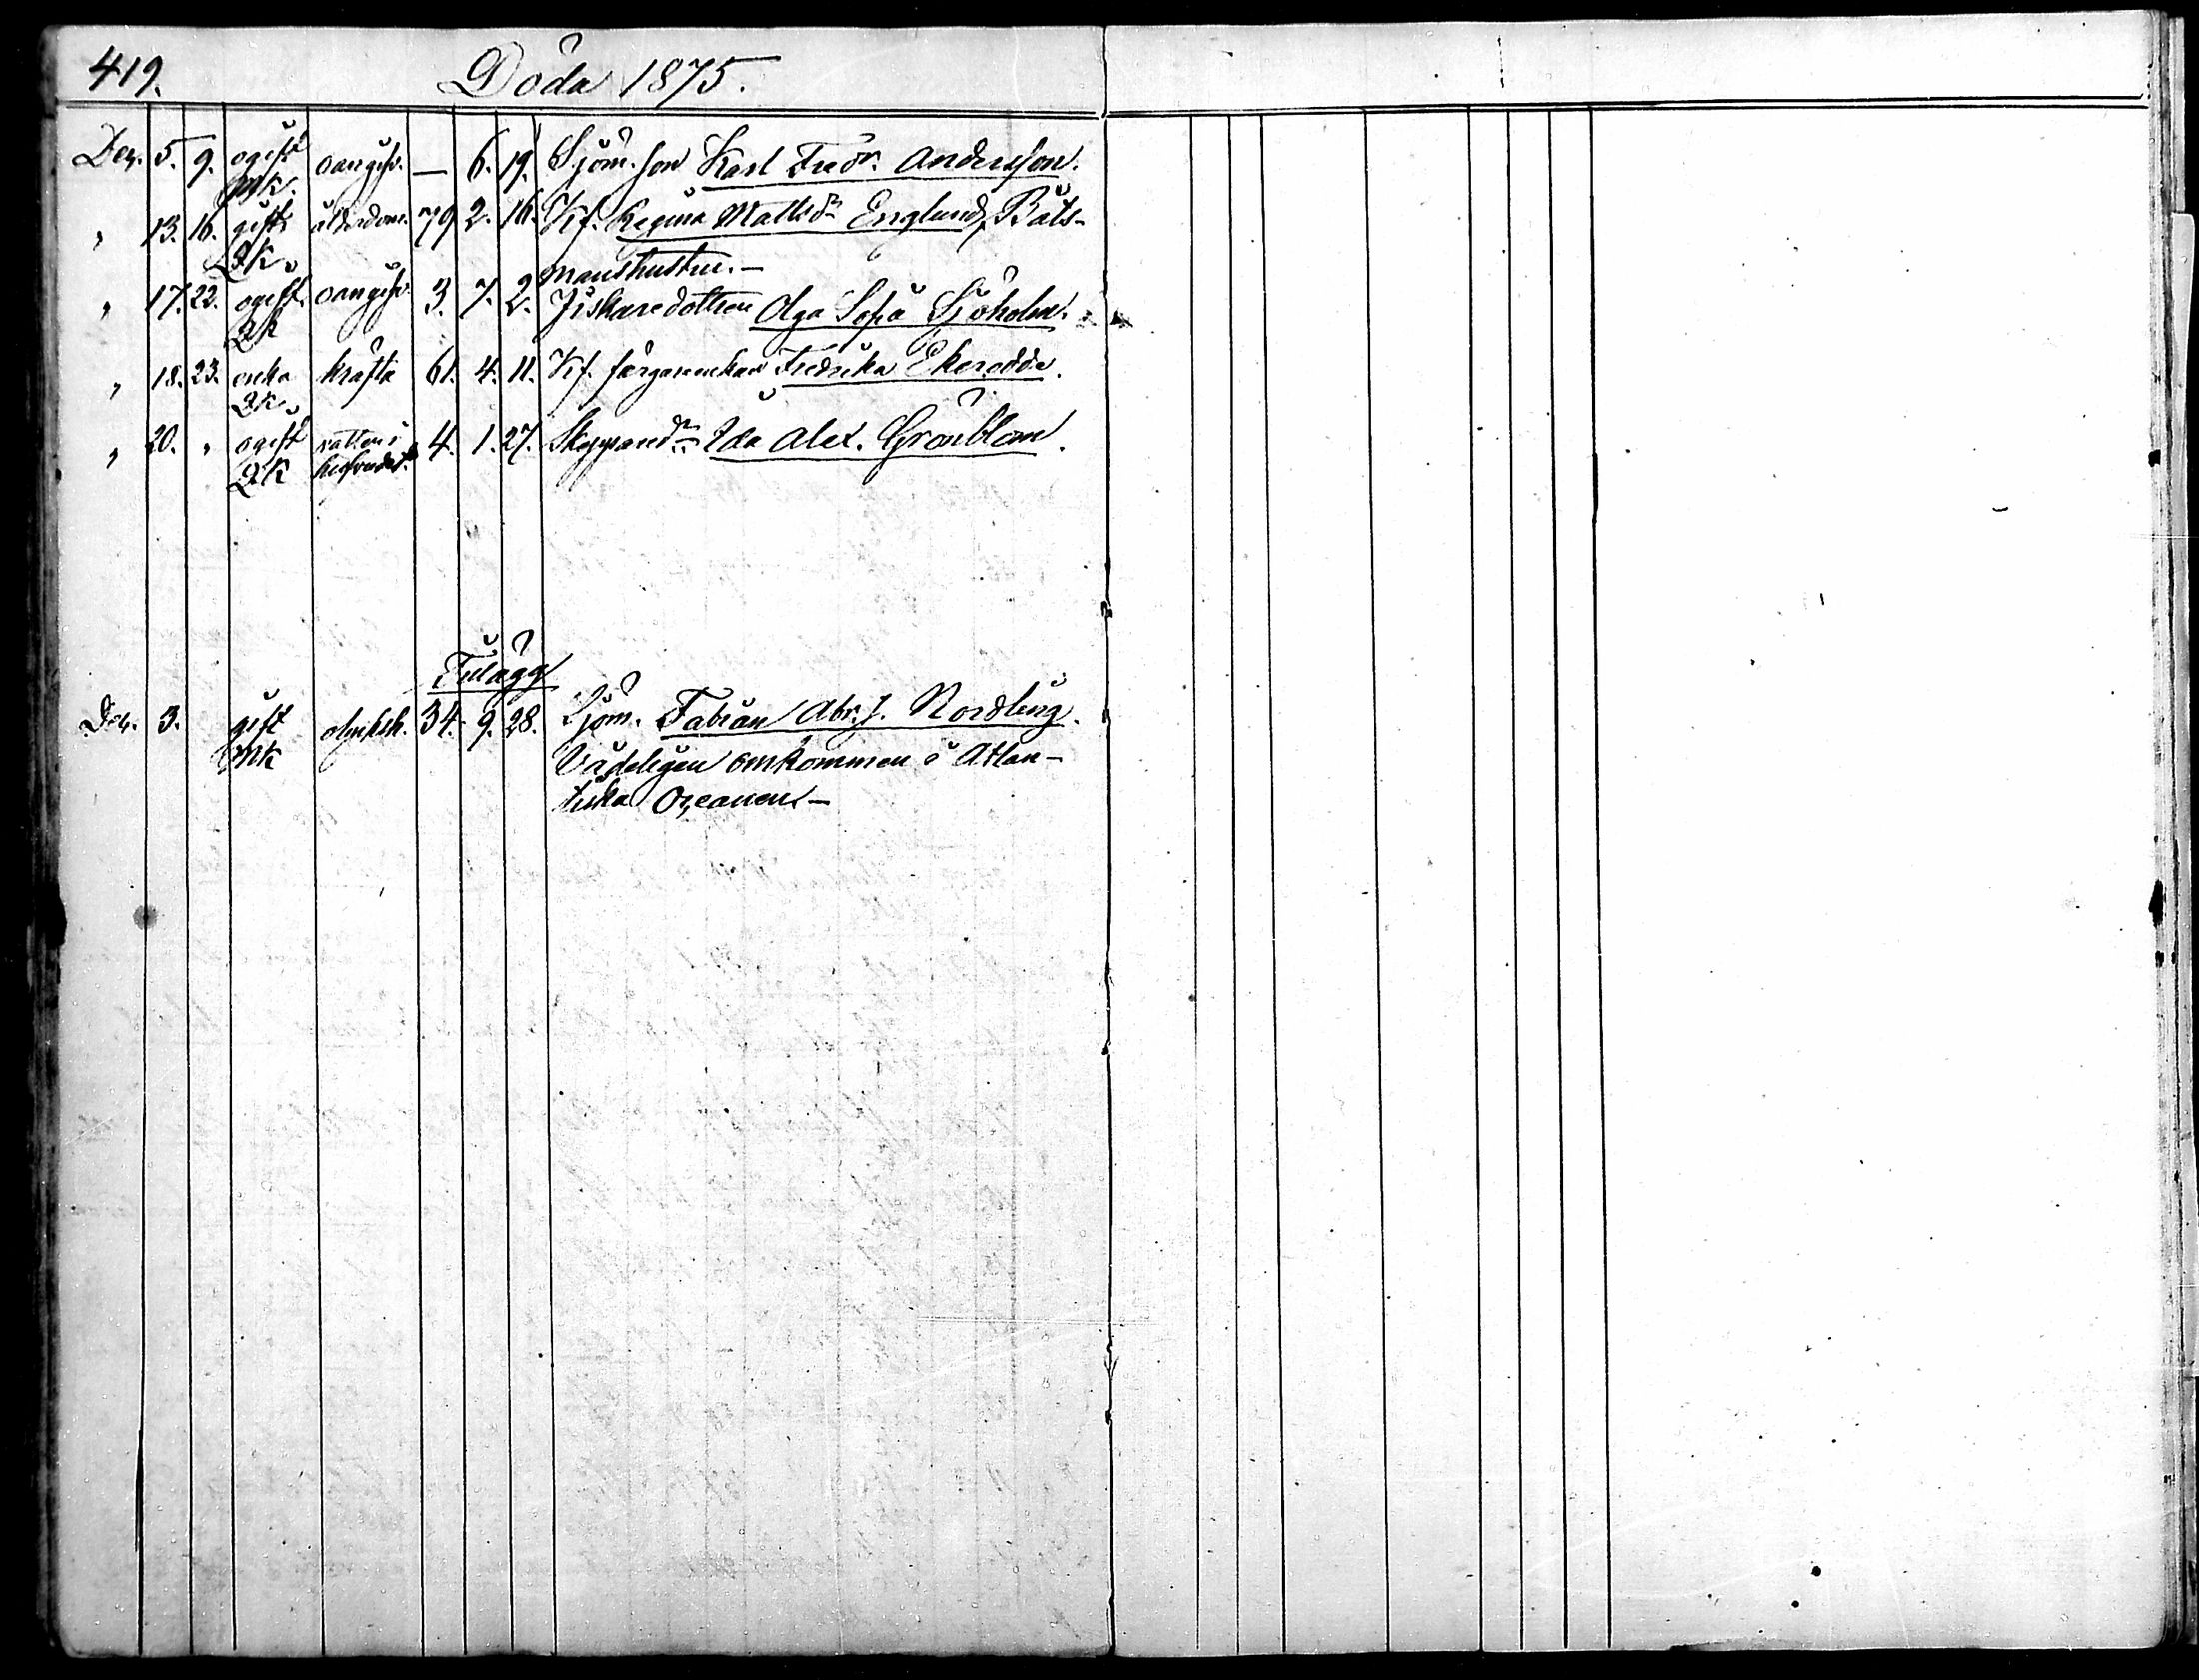 419.
Döda 1875.
Dez. 5. 9. ogift oangifv. — 6. 19. Sjöm. son Karl Fredr. Andersson.
Mk.
" 13. 16. gift ålderdom. 79 2. 16. Kf. Regina Mattsdr Englund, Båts-
Qk. manshustru. —
" 17. 22. ogift oangifv. 3. 7. 2. Fiskaredottren Olga Sofia Sjöholm.
Qk
" 18. 23. enka kräfta 61. 4. 11. Kf. färgareenkan Fredrika Ekerodde.
Qk.
" 20. " ogift vatten i 4. 1. 27. Skeppared:r Ida Alex. Grönblom.
Qk hufvudet.
Tillägg
Dez. 3. gift olycksh. 34. 9. 28. Sjöm. Fabian Abr. J. Nordling.
Mk Vådeligen omkommen i Atlan-
tiska Oceanen. —